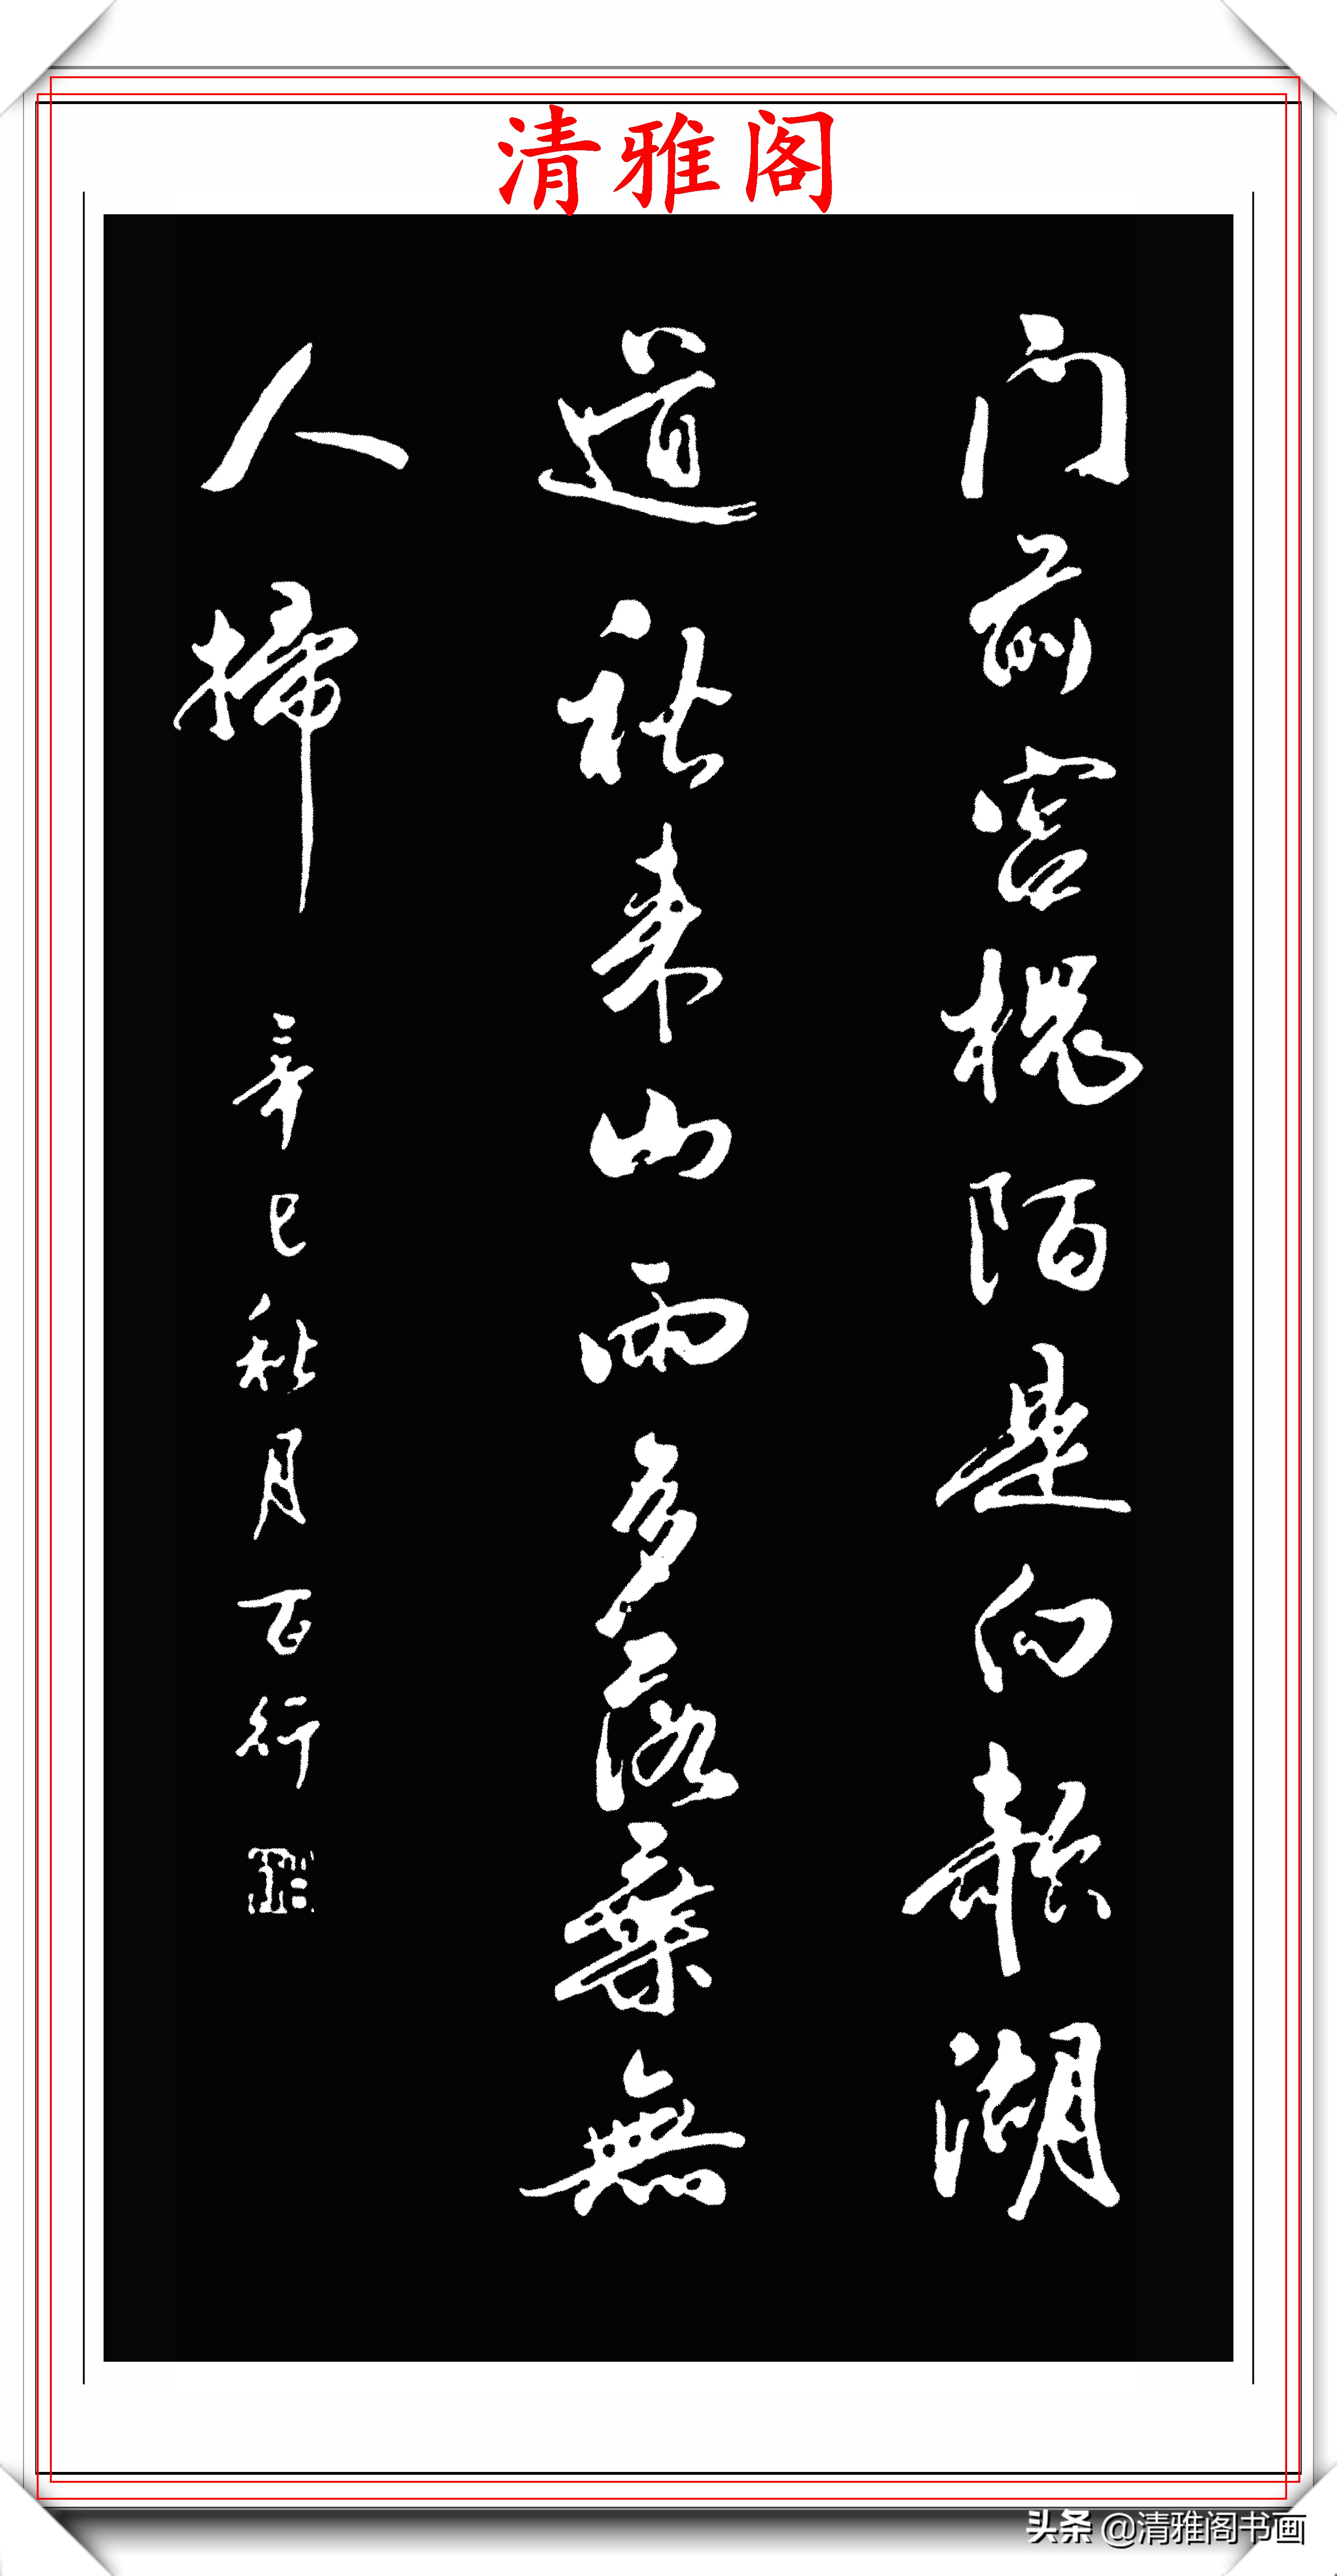 清雅阁
门前宫槐陌是向欹湖
道秋来山雨多落葉無
人掃
辛巳秋月百行
头条 @清雅阁书画